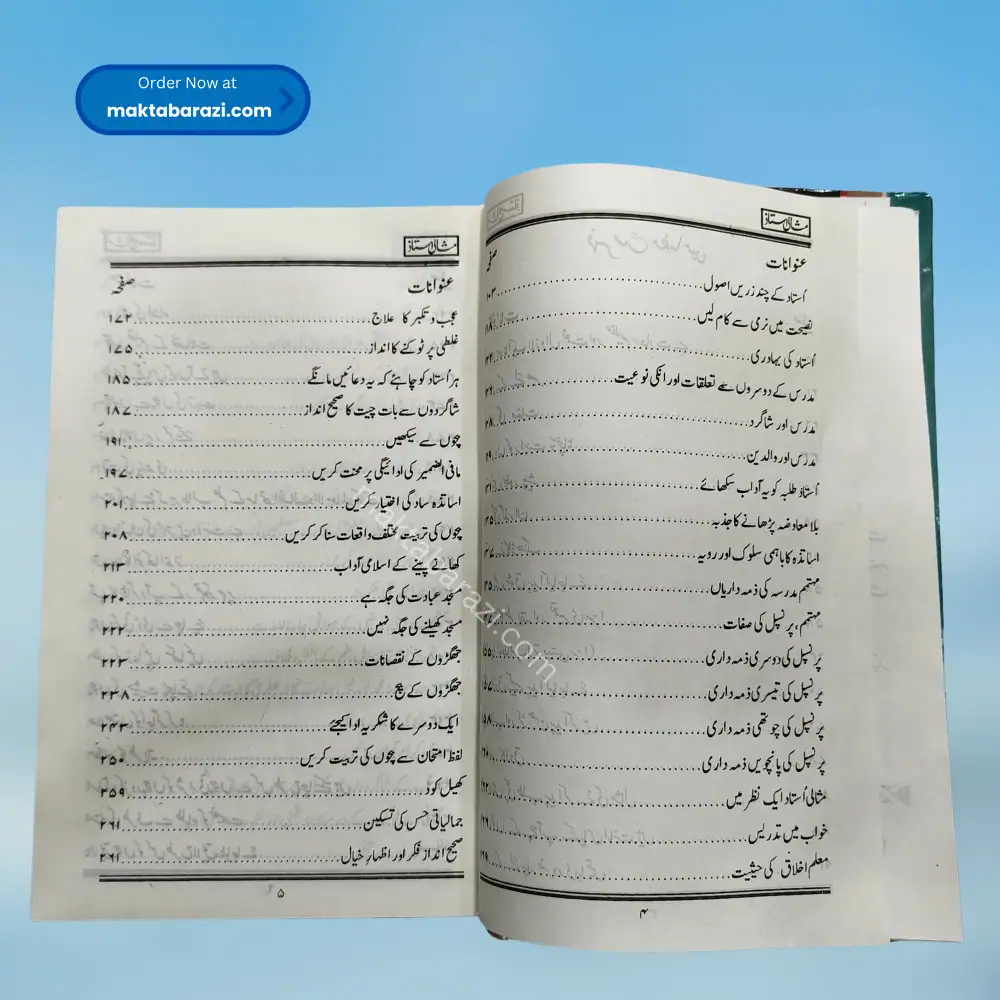 Order Now at
maktabarazi.com
مثالی استاذ
عنوانات صفحہ
اُستاد کے چند زریں اصول ۱۰۳
نصیحت میں نرمی سے کام لیں
اُستاد کی بہادری
مدرس کے دوسروں سے تعلقات اور انکی نوعیت
مدرس اور شاگرد
مدرس اور والدین
اُستاذ طلبہ کو یہ آداب سکھائے
بلا معاوضہ پڑھانے کا جذبہ
اساتذہ کا باہمی سلوک اور رویہ
مہتمم مدرسہ کی ذمہ داریاں
مہتمم، پرنسپل کی صفات
پرنسپل کی دوسری ذمہ داری
پرنسپل کی تیسری ذمہ داری
پرنسپل کی چوتھی ذمہ داری
پرنسپل کی پانچویں ذمہ داری
مثالی اُستاد ایک نظر میں
خواب میں تدریس
معلم اخلاق کی حیثیت
۴
مثالی استاذ
عنوانات صفحہ
عجب و تکبر کا علاج ۱۷۲
غلطی پر ٹوکنے کا انداز ۱۷۵
ہر اُستاد کو چاہئے کہ یہ دعائیں مانگے ۱۸۵
شاگردوں سے بات چیت کا صحیح انداز ۱۸۷
بچوں سے سیکھیں ۱۹۱
مافی الضمیر کی ادائیگی پر محنت کریں ۱۹۷
اساتذہ سادگی اختیار کریں ۲۰۱
بچوں کی تربیت مختلف واقعات سنا کر کریں ۲۰۸
کھانے پینے کے اسلامی آداب ۲۱۳
مسجد عبادت کی جگہ ہے ۲۲۰
مسجد کھیلنے کی جگہ نہیں ۲۲۲
جھگڑوں کے نقصانات ۲۲۳
جھگڑوں کے بیج ۲۳۸
ایک دوسرے کا شکریہ ادا کیجئے ۲۴۳
لفظ امتحان سے بچوں کی تربیت کریں ۲۵۰
کھیل کود ۲۵۹
جمالیاتی حس کی تسکین ۲۶۱
صحیح انداز فکر اور اظہار خیال ۲۶۱
۵
maktabarazi.com